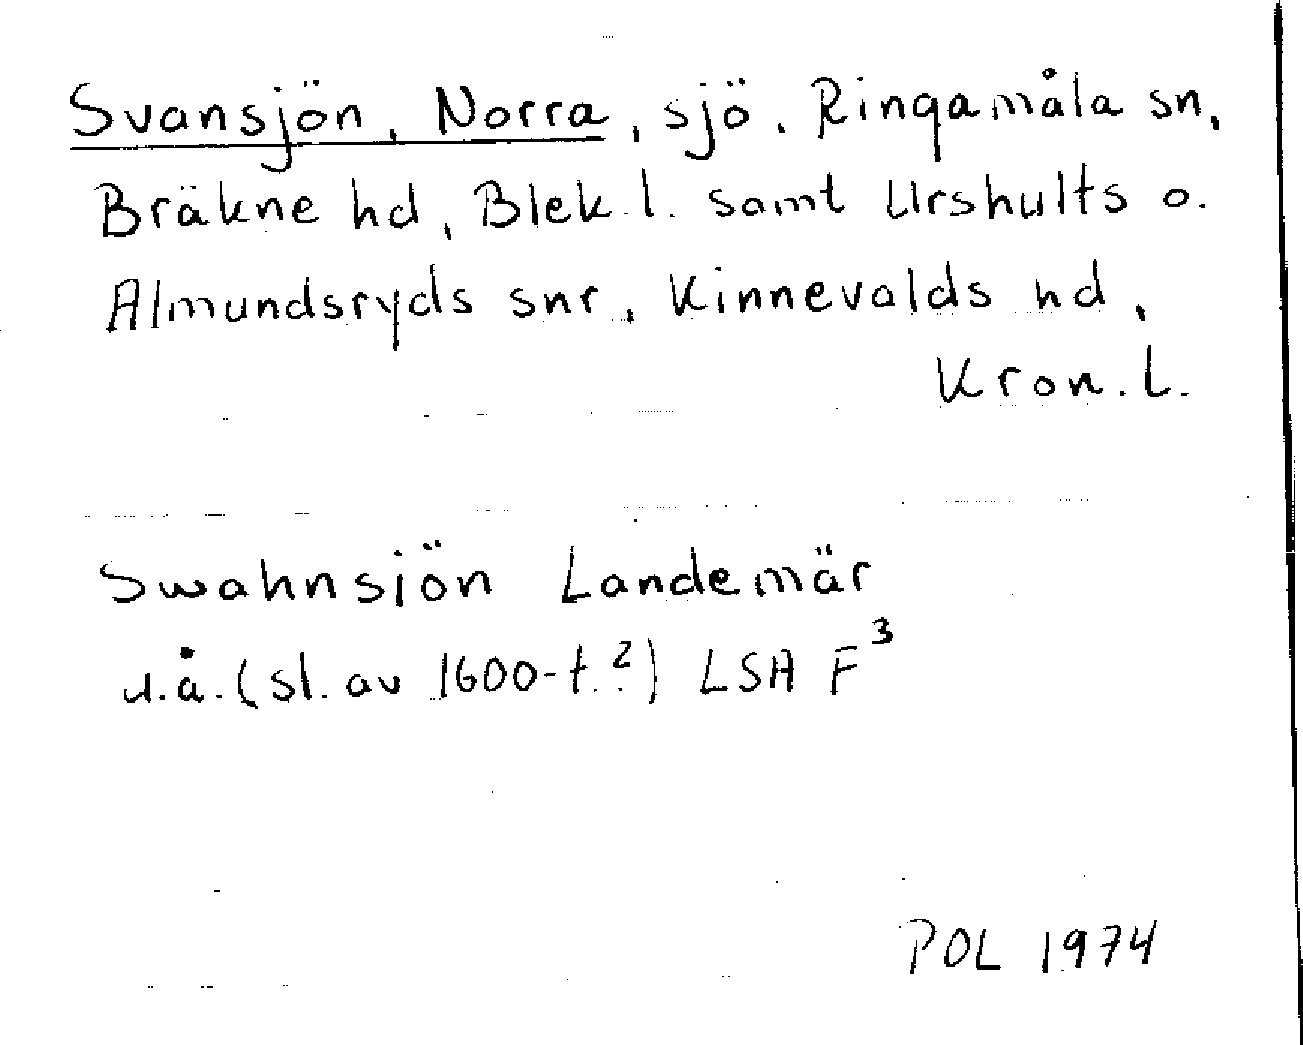 Svansjön, Norra, sjö. Ringamåla sn,
Bräkne hd, Blek. l. samt Urshults o.
Almundsryds snr, Kinnevalds hd,
Kron. L.
Swahnsiön Landemär
u.å. (sl. av 1600-t.?) LSA F³
POL 1974